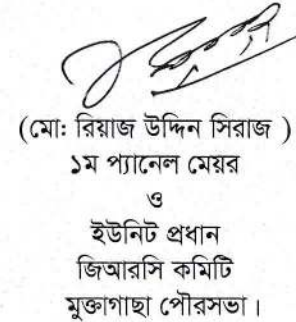 (মো: রিয়াজ উদ্দিন সিরাজ )
১ম প্যানেল মেয়র
ও
ইউনিট প্রধান
জিআরসি কমিটি
মুক্তাগাছা পৌরসভা।